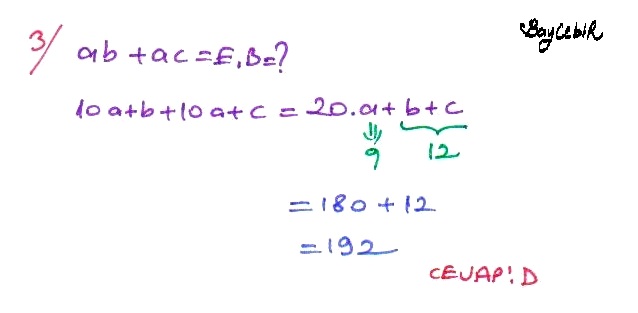 BayCebiR
3/ ab + ac = E.B = ?
10a + b + 10a + c = 20.a + b + c
9 12
= 180 + 12
= 192
CEVAP: D